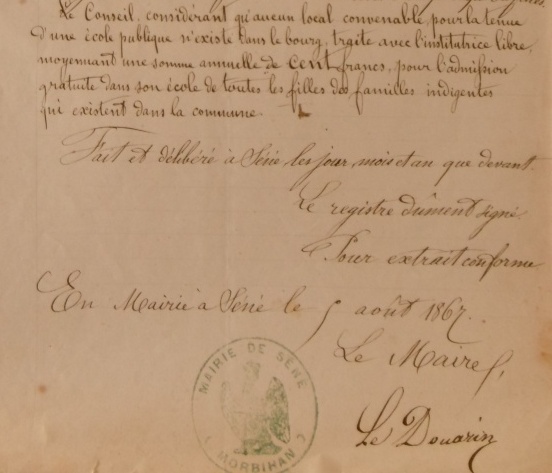 Le Conseil, considérant qu'aucun local convenable pour la tenue
d'une école publique n'existe dans le bourg, traite avec l'institutrice libre,
moyennant une somme annuelle de cent francs, pour l'admission
gratuite dans son école de toutes les filles des familles indigentes
qui existent dans la commune.
Fait et délibéré à Séné les jour, mois et an que devant.
Le registre dûment signé
Pour extrait conforme
En Mairie à Séné le 5 août 1867.
Le Maire,
MAIRIE DE SÉNÉ
(MORBIHAN)
Le Douarin